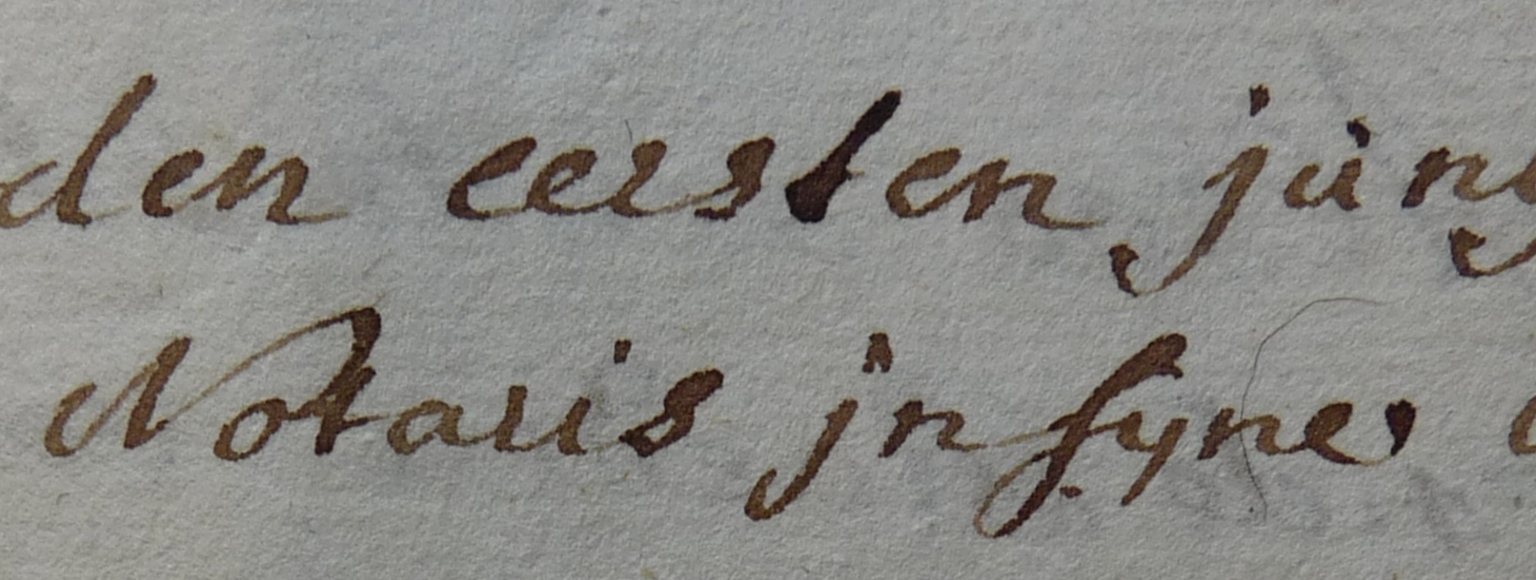 den eersten jung
Notaris jn syne